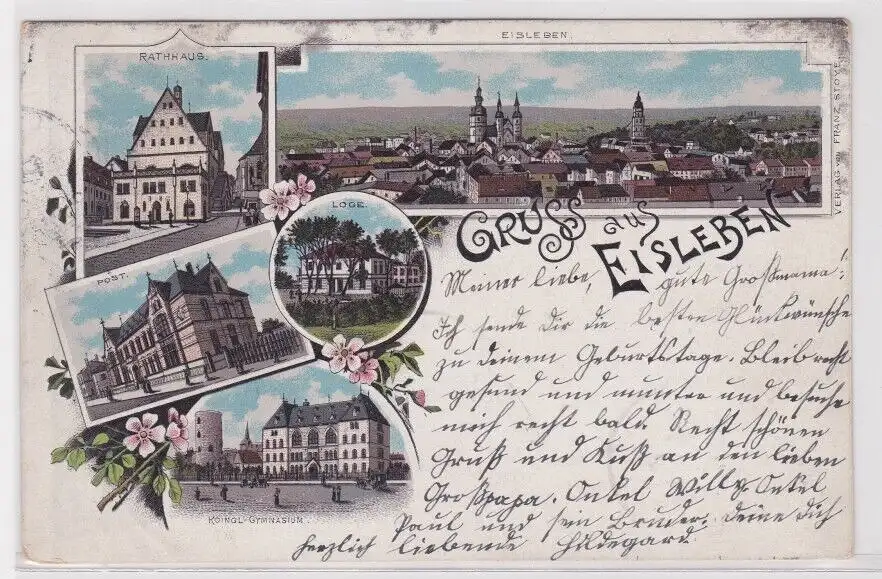 EISLEBEN.
RATHHAUS.
VERLAG von FRANZ STOYE
LOGE.
POST.
GRUSS aus EISLEBEN
KÖNGL-GYMNASIUM.
Meiner lieben, guten Großmama!
Ich sende Dir die besten Glückwünsche
zu deinem Geburtstage. Bleib recht
gesund und munter und besuche
mich recht bald. Recht schönen
Gruß und Kuß an den lieben
Großpapa, Onkel Willy, Onkel
Paul und sein Bruder. Deine Dich
herzlich liebende Hildegard.